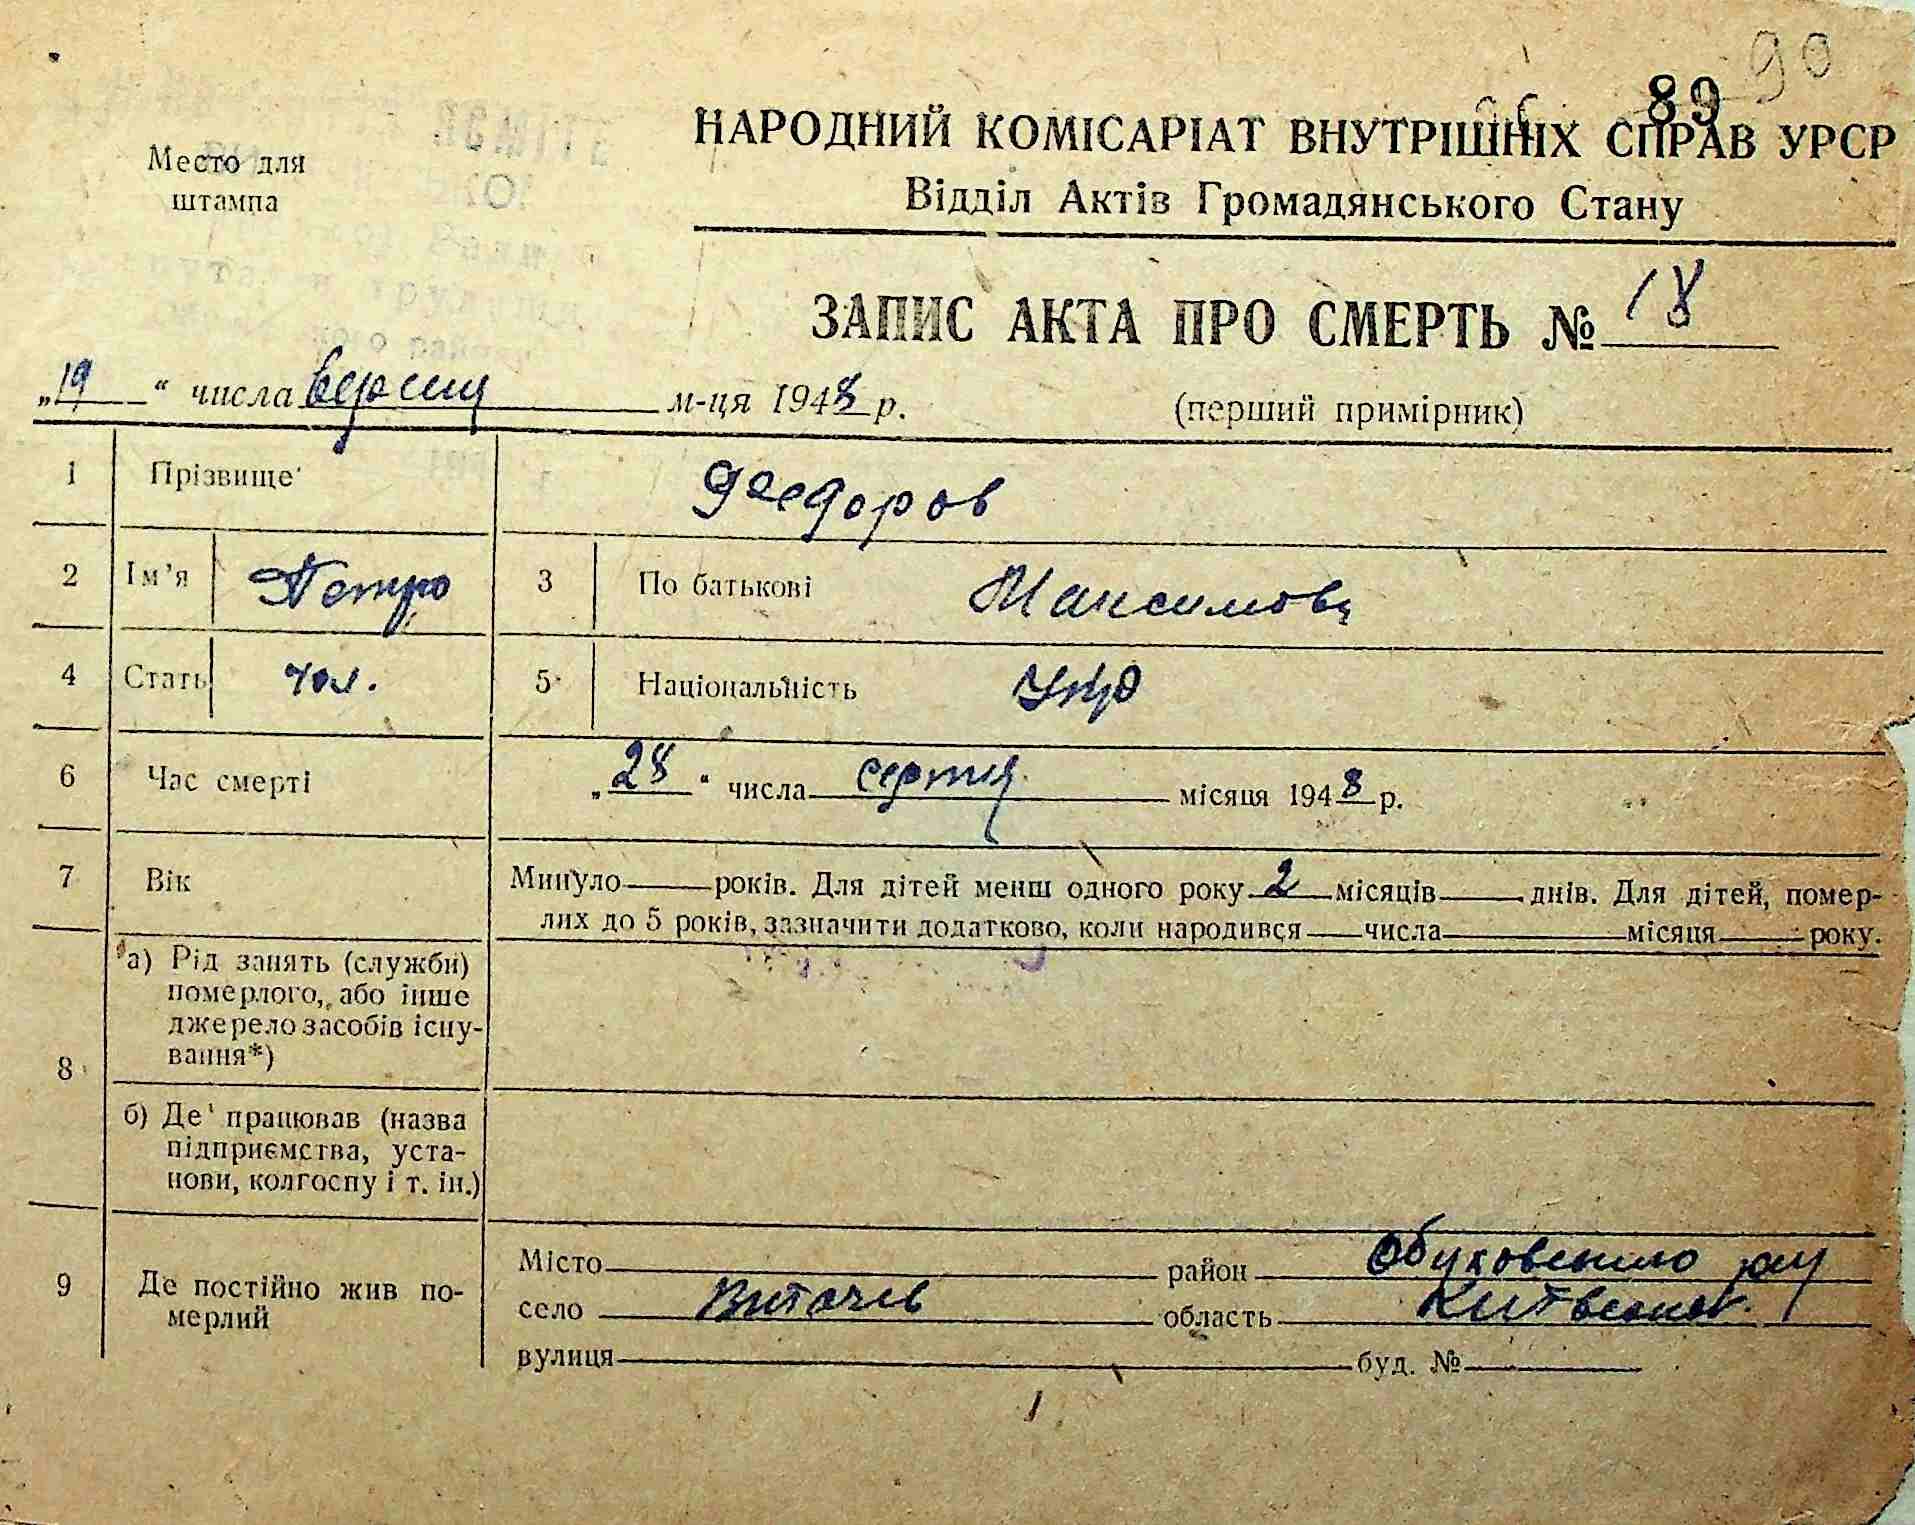 90
89
Место для
штампа
НАРОДНИЙ КОМІСАРІАТ ВНУТРІШНІХ СПРАВ УРСР
Відділ Актів Громадянського Стану
ЗАПИС АКТА ПРО СМЕРТЬ № 18
„19“ числа вересня м-ця 1948 р.
(перший примірник)
1 Прізвище Феедоров
2 Ім’я Петро 3 По батькові Максимовч
4 Стать чол. 5 Національність Укр
6 Час смерті „28“ числа серпня місяця 1948 р.
7 Вік Минуло рокiв. Для дітей менш одного року 2 місяців днів. Для дітей, помер-
лих до 5 років, зазначити додатково, коли народився числа місяця року.
8 а) Рід занять (служби)
померлого, або інше
джерело засобів існу-
вання*)
б) Де працював (назва
підприємства, уста-
нови, колгоспу і т. ін.)
9 Де постійно жив по-
мерлий
Місто район Обуховського р-ну
село Витачев область Китвськоі
вулиця буд. №